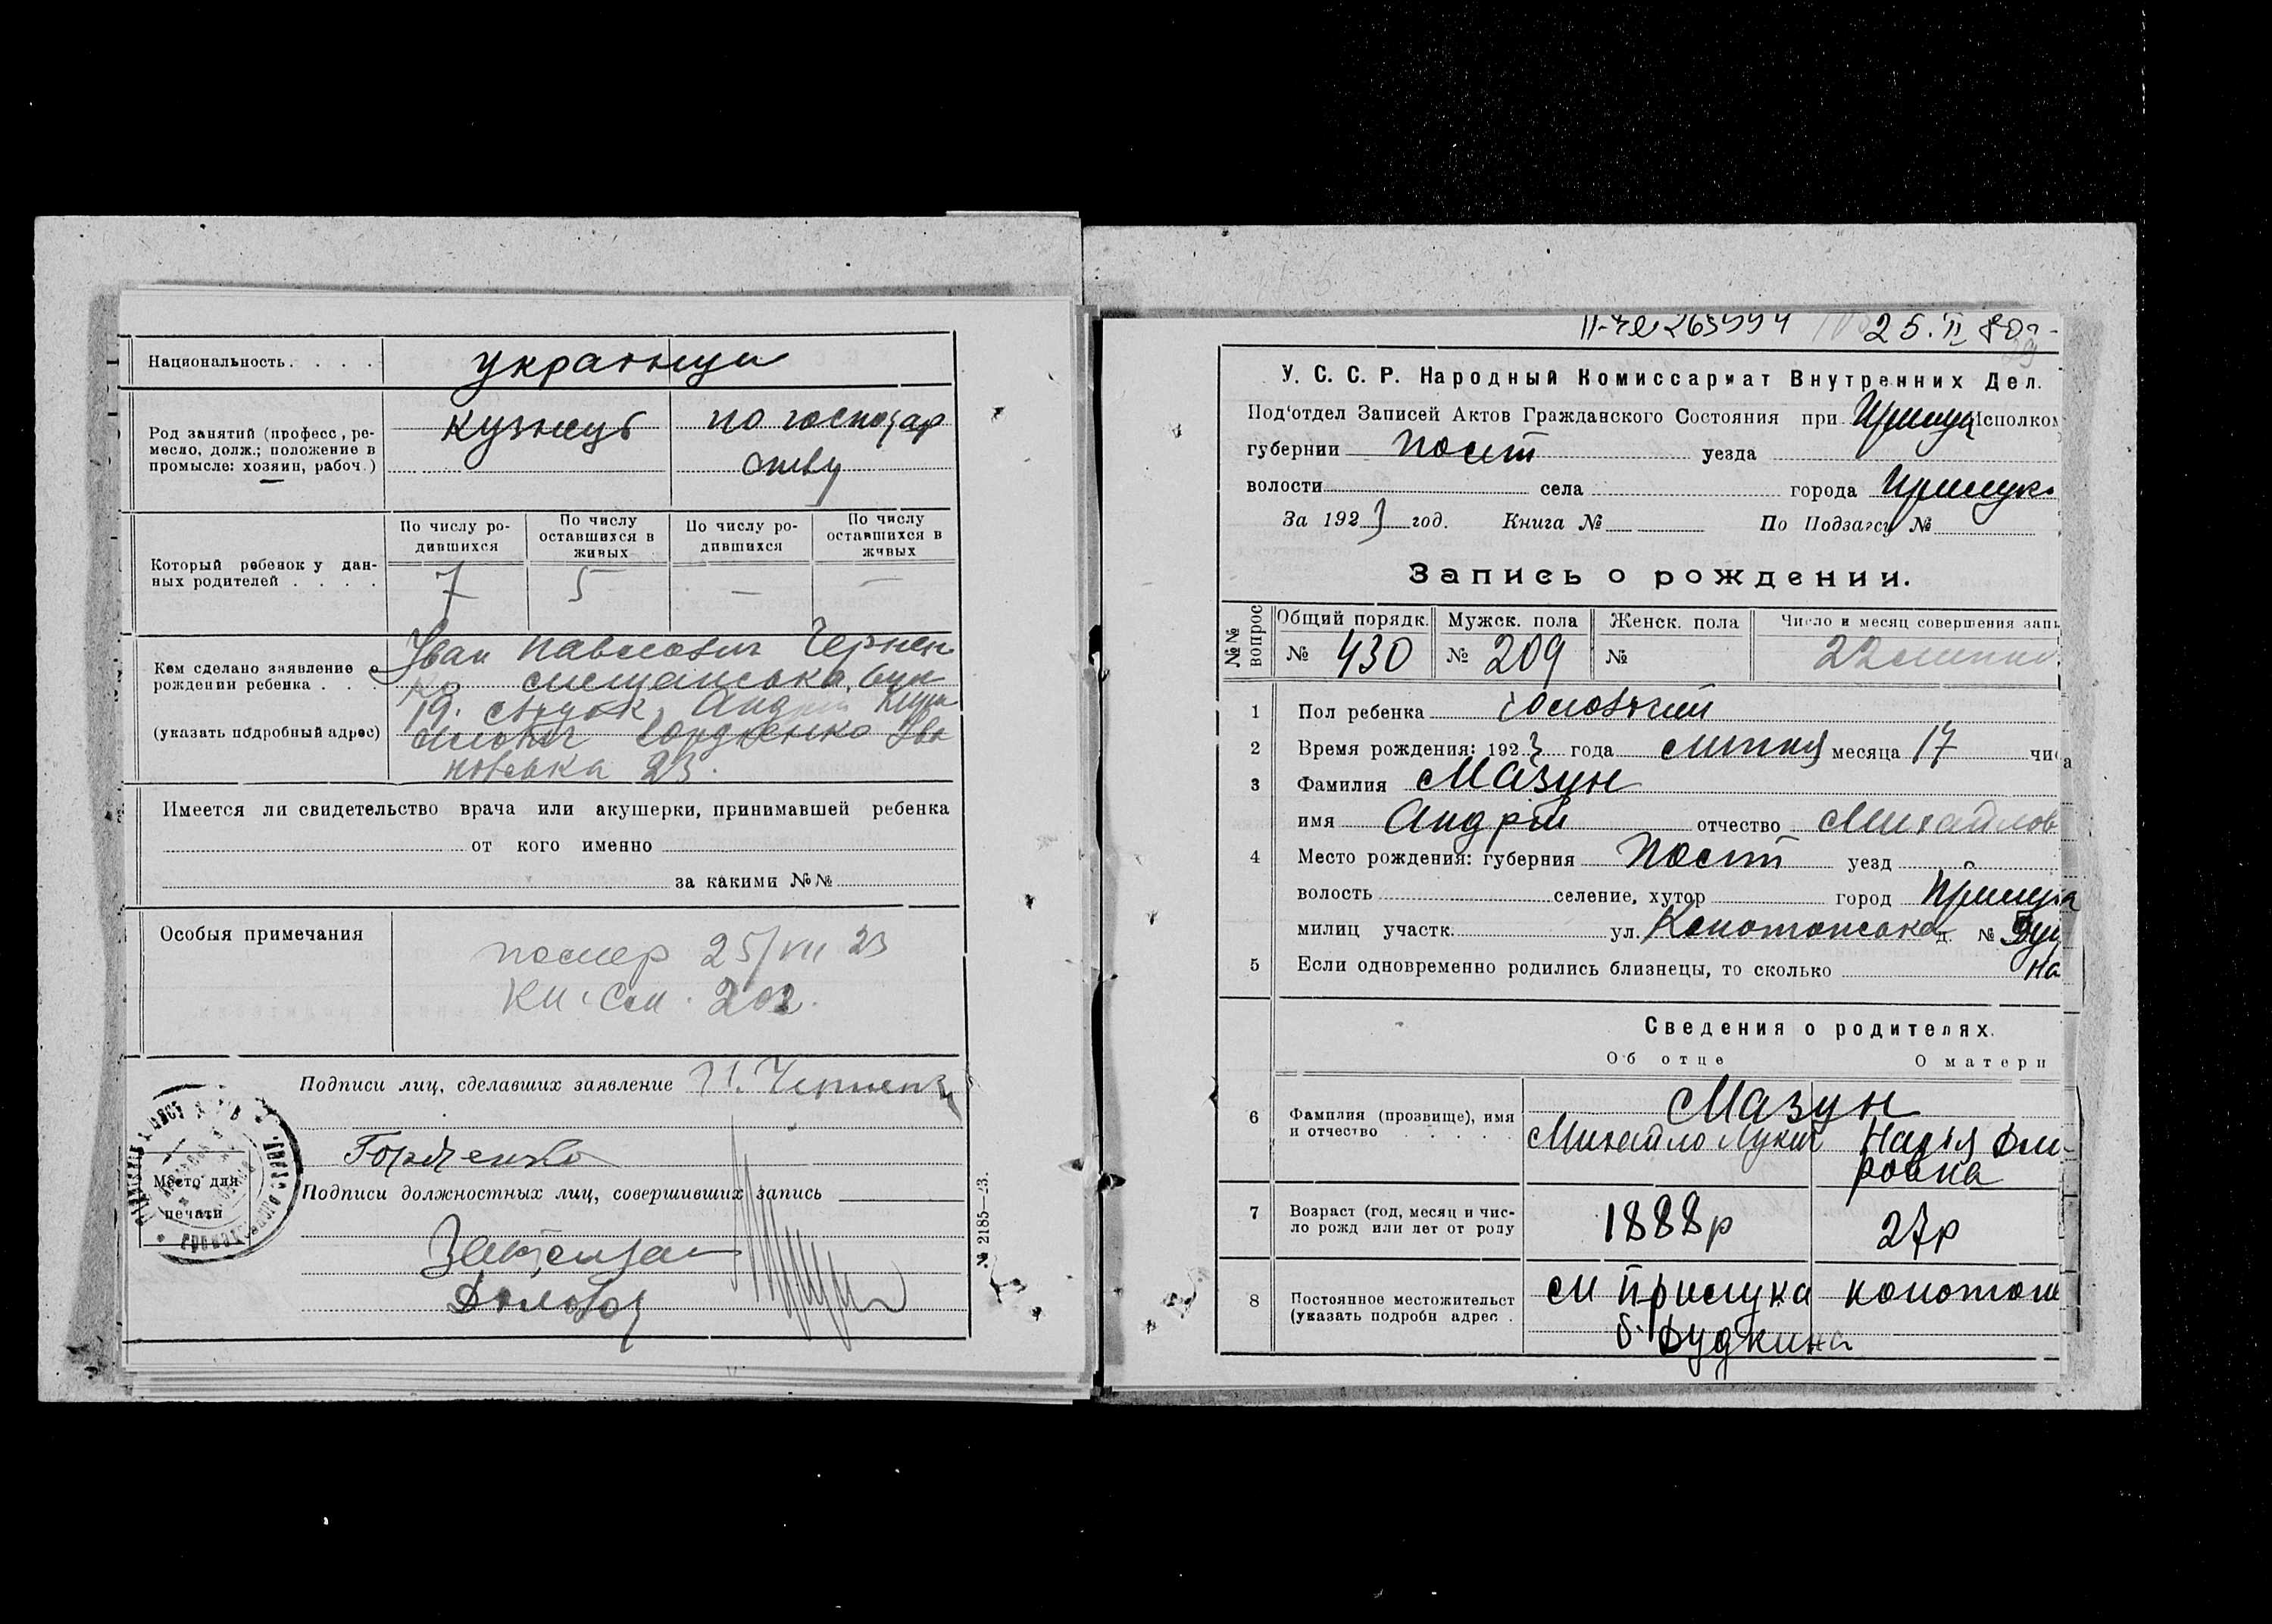 Национальность . . . .
українці
Род занятий (професс, ре-
месло, долж.; положение в
промысле: хозяин, рабоч.)
кузнець
по господар
ству
Который ребенок у дан-
ных родителей . . . .
По числу ро-
дившихся
По числу
оставшихся в
живых
По числу ро-
дившихся
По числу
оставшихся в
живых
7 5 – –
Кем сделано заявление о
рождении ребенка . . .
(указать подробный адрес)
Іван Павлович Чернен
ко
19.
Гордієнко Іва
новська 23.
Имеется ли свидетельство врача или акушерки, принимавшей ребенка
от кого именно
за какими №№
Особыя примечания
помер 25/VII 23
кн. см. 202.
Подписи лиц, сделавших заявление
Гордієнко
Подписи должностных лиц, совершивших запись
Место для
печати
Діловод
№ 2185—23.
25.II 80г-
У. С. С. Р. Народный Комиссариат Внутренних Дел.
Под'отдел Записей Актов Гражданского Состояния при Исполком
губернии Полт уезда
волости села города Прилуки
За 1923 год. Книга № По Подзагсу №
Запись о рождении.
№№ вопрос
Общий порядк. Мужск. пола Женск. пола Число и месяц совершения запи
№ 430 № 209 № 22 липня
1 Пол ребенка чоловічий
2 Время рождения: 1923 года липня месяца 17 числа
3 Фамилия Мазун
имя Андрій отчество Михайлов
4 Место рождения: губерния Полт уезд
волость селение, хутор город Прилука
милиц участк. ул. Конотопська д. №
5 Если одновременно родились близнецы, то сколько
Сведения о родителях.
Об отце О матери
6 Фамилия (прозвище), имя
и отчество . . . . .
Мазун
Михайло Лукич Надія Дми-
ровна
7 Возраст (год, месяц и чис-
ло рожд или лет от роду
1888р 27р
8 Постоянное местожительст
(указать подробн адрес .
м Прилука конотоп
б. Дудкина